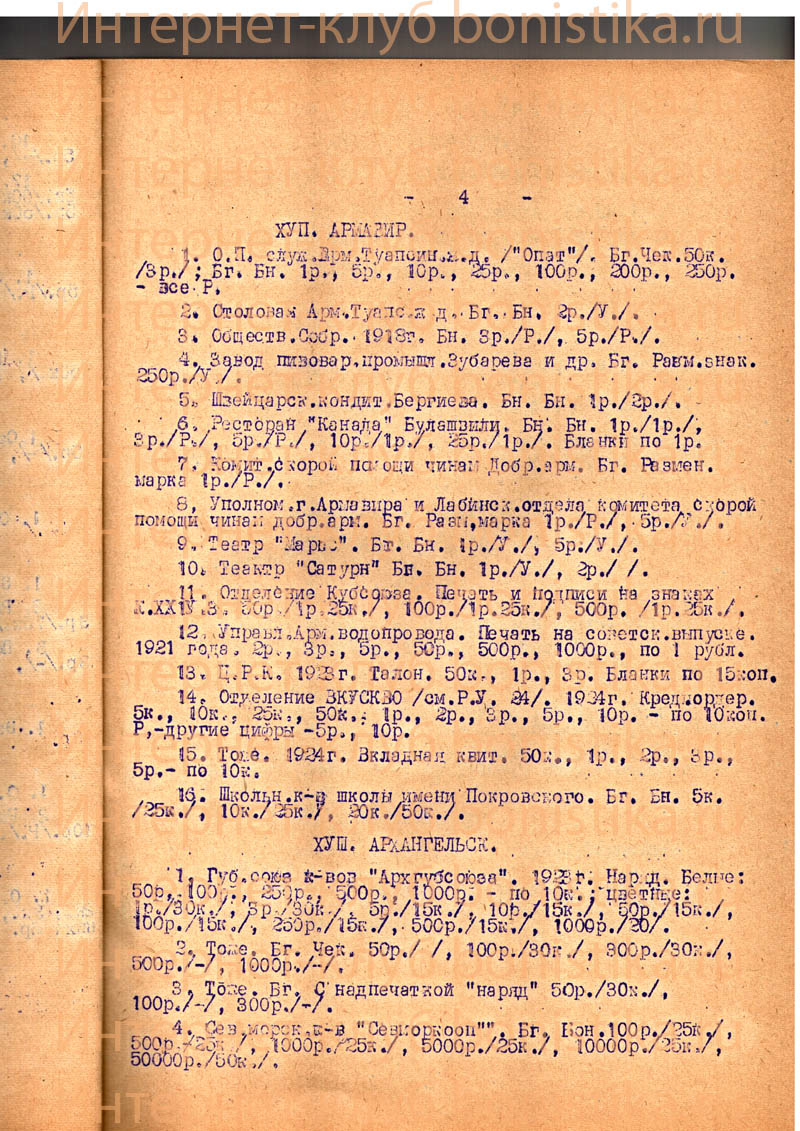 Интернет-клуб bonistika.ru
- 4 -
ХУП. АРМАВИР.
1. О.П. служ.Арм.Туапсин.ж.д. /"Опат"/. Бг.Чек.50к.
/3р./; Бг. Бн. 1р., 5р., 10р., 25р., 100р., 200р., 250р.
- все Р.
2. Столовая Арм.Туапс.ж.д. Бг. Бн. 2р./У./.
3. Обществ.Собр. 1918г. Бн. 3р./Р./, 5р./Р./.
4. Завод пивовар.промышл.Зубарева и др. Бг. Разм.знак.
250р./У./.
5. Швейцарск.кондит.Бергиева. Бн. Бн. 1р./2р./.
6. Ресторан "Канада" Булашвили. Бн. Бн. 1р./1р./,
3р./Р./, 5р./Р./, 10р./1р./, 25р./1р./. Бланки по 1р.
7. Комит.скорой помощи чинам Добр.арм. Бг. Размен.
марка 1р./Р./.
8, Уполном.г.Армавира и Лабинск.отдела комитета скорой
помощи чинам добр.арм. Бг. Разм.марка 1р./Р./, 5р./У./.
9. Театр "Марс". Бг. Бн. 1р./У./, 5р./У./.
10. Теактр "Сатурн" Бг. Бн. 1р./У./, 2р./ /.
11. Отделение Кубсоюза. Печать и подписи на знаках
К.ХХ1У.3. 50р./1р.25к./, 100р./1р.25к./, 500р. /1р.25к./.
12. Управл.Арм.водопровода. Печать на советск.выпуске.
1921 года. 2р., 3р., 5р., 50р., 500р., 1000р., по 1 рубл.
13. Ц.Р.К. 1923г. Талон. 50к., 1р., 3р. Бланки по 15коп.
14. Отделение ВКУСКВО /см.Р.У. 24/. 1924г. Кредпордер.
5к., 10к., 25к., 50к., 1р., 2р., 3р., 5р., 10р. - по 10коп.
Р,-другие цифры -5р., 10р.
15. Тоже. 1924г. Вкладная квит. 50к., 1р., 2р., 3р.,
5р.- по 10к.
16. Школьн.к-в школы имени Покровского. Бг. Бн. 5к.
/25к./, 10к./25к./, 20к./50к./.
ХУШ. АРХАНГЕЛЬСК.
1. Губ.союз к-вов "Архгубсоюза". 1923г. Наряд. Белые:
50р, 100р., 250р., 500р., 1000р. - по 10к.; цветные:
1р./30к./, 3р./30к./, 5р./15к./, 10р./15к./, 50р./15к./,
100р./15к./, 250р./15к./, 500р./15к./, 1000р./20/.
2. Тоже. Бг. Чек. 50р./ /, 100р./30к./, 300р./30к./,
500р./-/, 1000р./-/.
3. Тоже. Бг. С надпечаткой "наряд" 50р./30к./,
100р./-/, 300р./-/.
4. Сев.морск.к-в "Севморкооп"". Бг. Бон.100р./25к./,
500р./25к./, 1000р./25к./, 5000р./25к./, 10000р./25к./,
50000р./50к./.